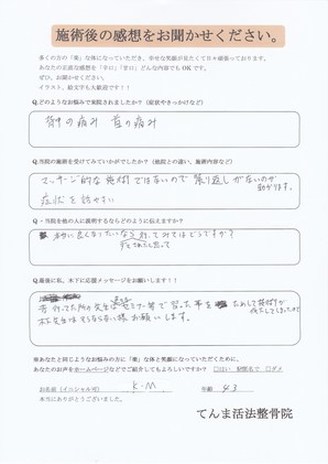 施術後の感想をお聞かせください。
多くの方の「楽」な体になっていただき、幸せな笑顔が見たくて日々頑張っております。
あなたの正直な感想を「辛口」「甘口」どんな内容でもOKです。
ぜひ、お聞かせください。
イラスト、絵文字も大歓迎です！！
Q.どのようなお悩みで来院されましたか？（症状やきっかけなど）
背中の痛み 首の痛み
Q.当院の施術を受けてみていかがでしたか？（他院との違い、施術内容など）
マッサージ的な施術ではないので 揉り返しがないのが
助かります。
症状を
Q.当院を他の人に説明するならどのように伝えますか？
本当に良くなりたいなら
Q.最後に私、木下に応援メッセージをお願いします！！
昔行ってた所の先生
木下先生は お願いします。
※あなたと同じようなお悩みの方に「楽」な体と笑顔になっていただくために、
あなたのお声をホームページなどでご紹介してもよろしいですか？ □はい □匿名で □ダメ
お名前（イニシャル可） K-M 年齢 43
本当にありがとうございました。
てんま活法整骨院